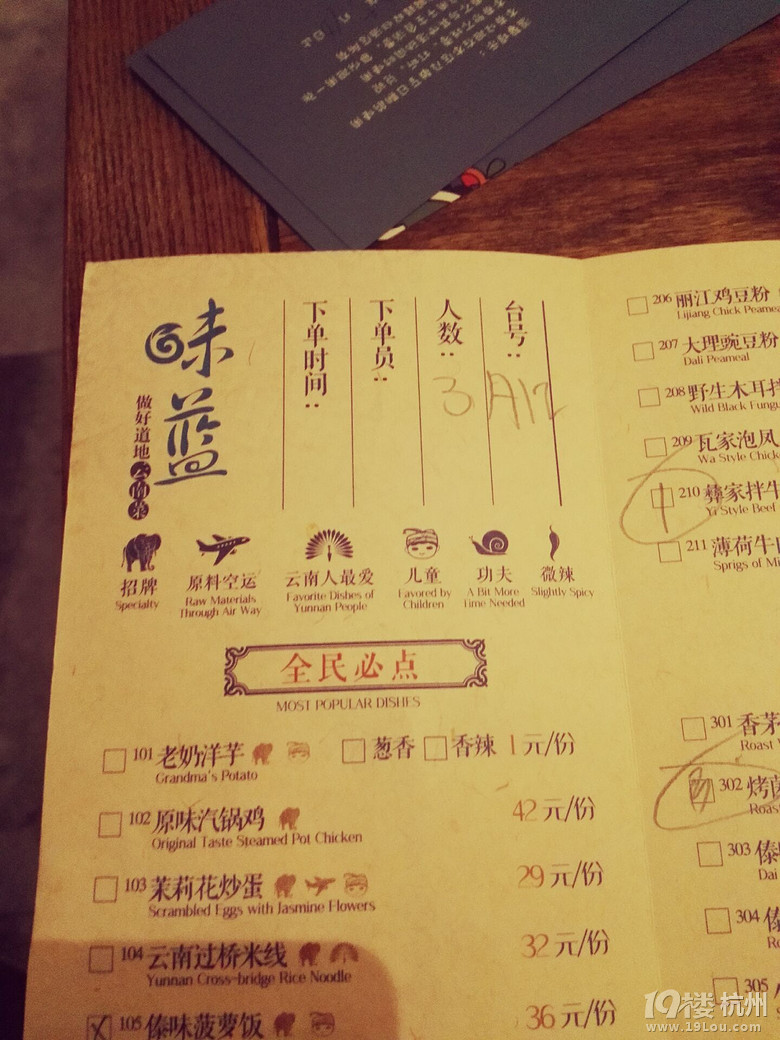 味蓝
做好道地云南菜
下单时间：
下单员：
人数：
3
台号：
A12
招牌
Specialty
原料空运
Raw Materials
Through Air Way
云南人最爱
Favorite Dishes of
Yunnan People
儿童
Favored by
Children
功夫
A Bit More
Time Needed
微辣
Slightly Spicy
全民必点
MOST POPULAR DISHES
101 老奶洋芋 葱香 香辣 1元/份
Grandma's Potato
102 原味汽锅鸡 42元/份
Original Taste Steamed Pot Chicken
103 茉莉花炒蛋 29元/份
Scrambled Eggs with Jasmine Flowers
104 云南过桥米线 32元/份
Yunnan Cross-bridge Rice Noodle
105 傣味菠萝饭 36元/份
206 丽江鸡豆粉
Lijiang Chick Peamea
207 大理豌豆粉
Dali Peameal
208 野生木耳拌
Wild Black Fungu
209 瓦家泡凤
Wa Style Chick
210 彝家拌牛
Yi Style Beef
211 薄荷牛
Sprigs of Mi
301 香茅
Roast
302 烤
Roas
303 傣
Dai
304 傣
Ro
305
19楼 杭州
www.19Lou.com